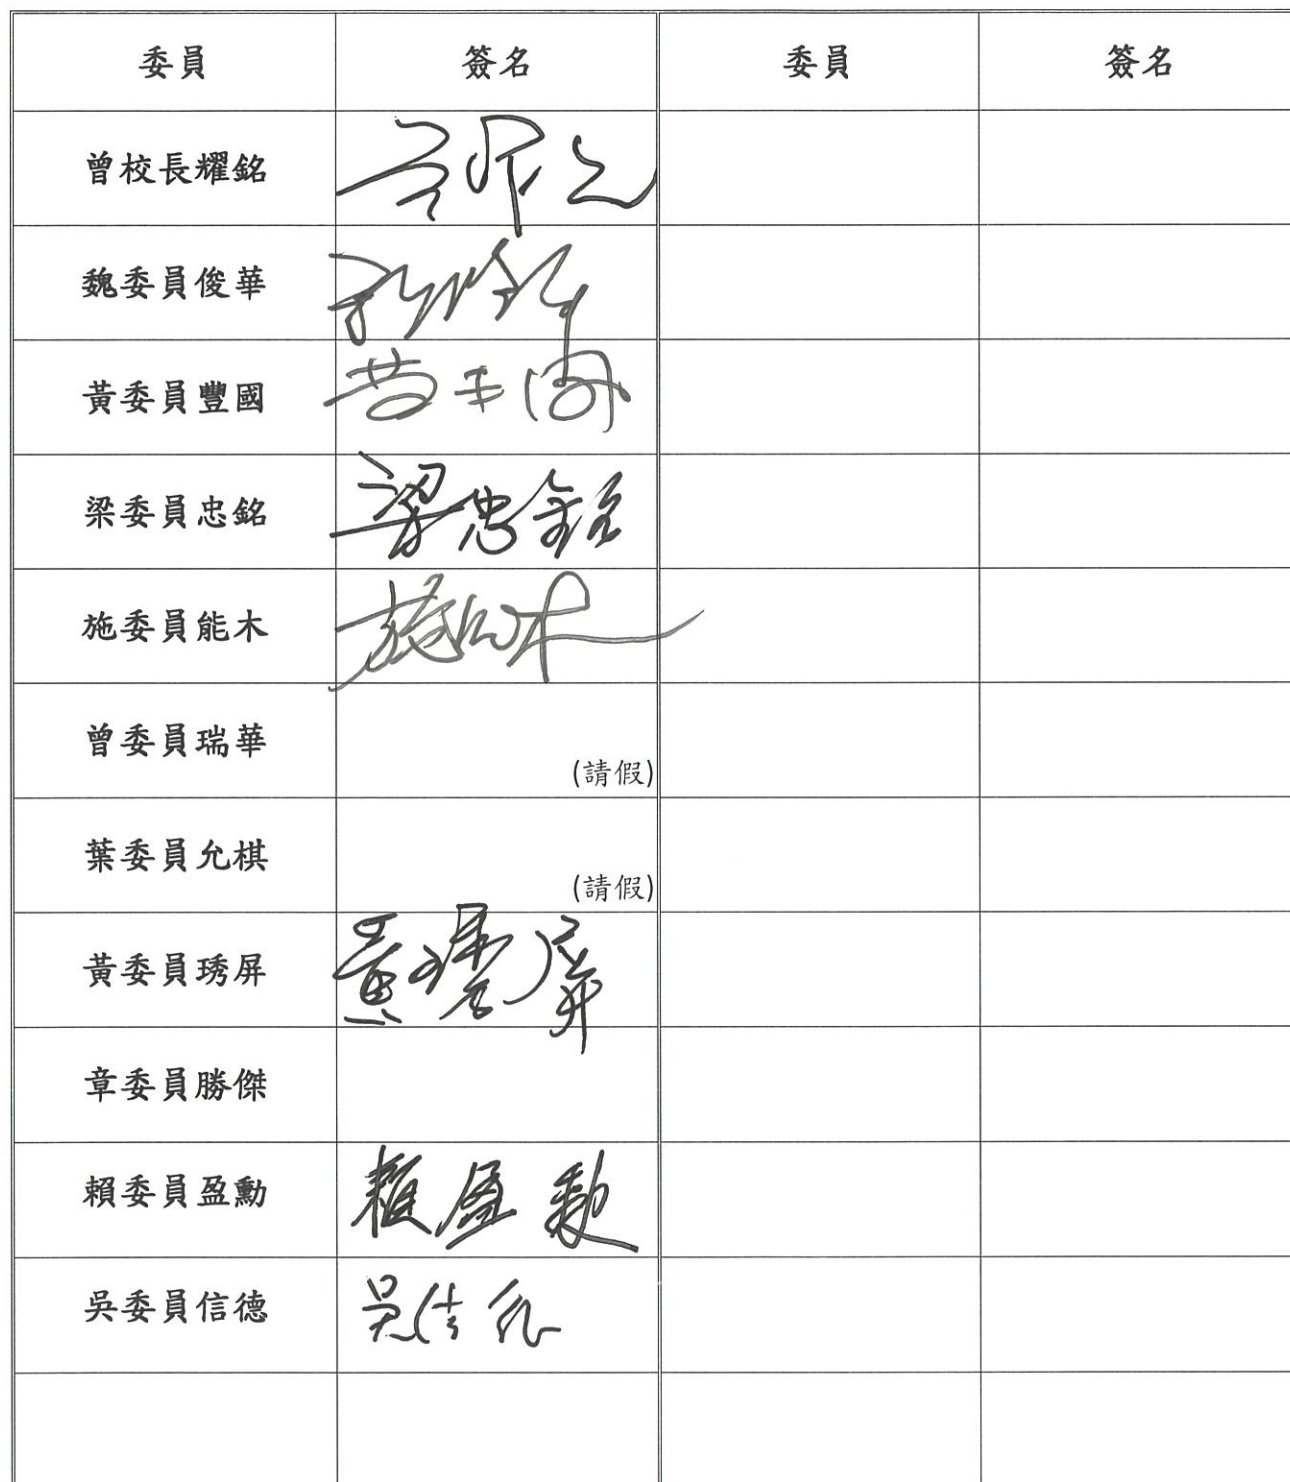 委員 簽名 委員 簽名
曾校長耀銘
魏委員俊華
黃委員豐國
梁委員忠銘 梁忠銘
施委員能木 施能木
曾委員瑞華 (請假)
葉委員允棋 (請假)
黃委員琇屏 黃琇屏
章委員勝傑
賴委員盈勳 賴盈勳
吳委員信德 吳信德